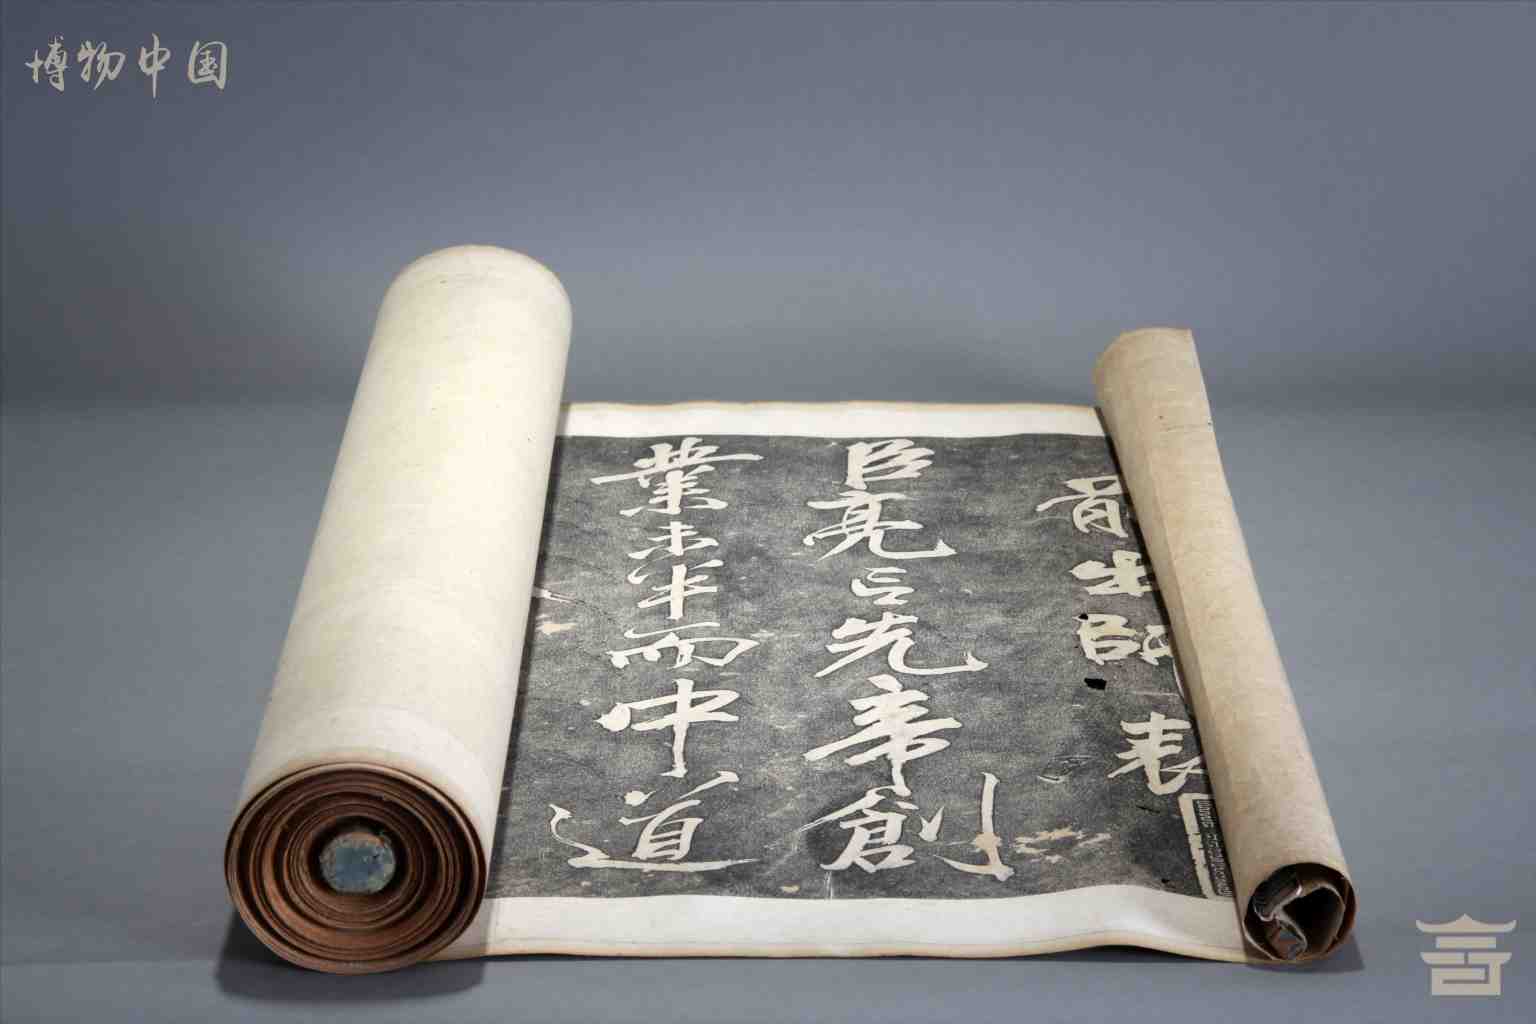 博物中国
前出師表
臣亮言先帝創
業未半而中道